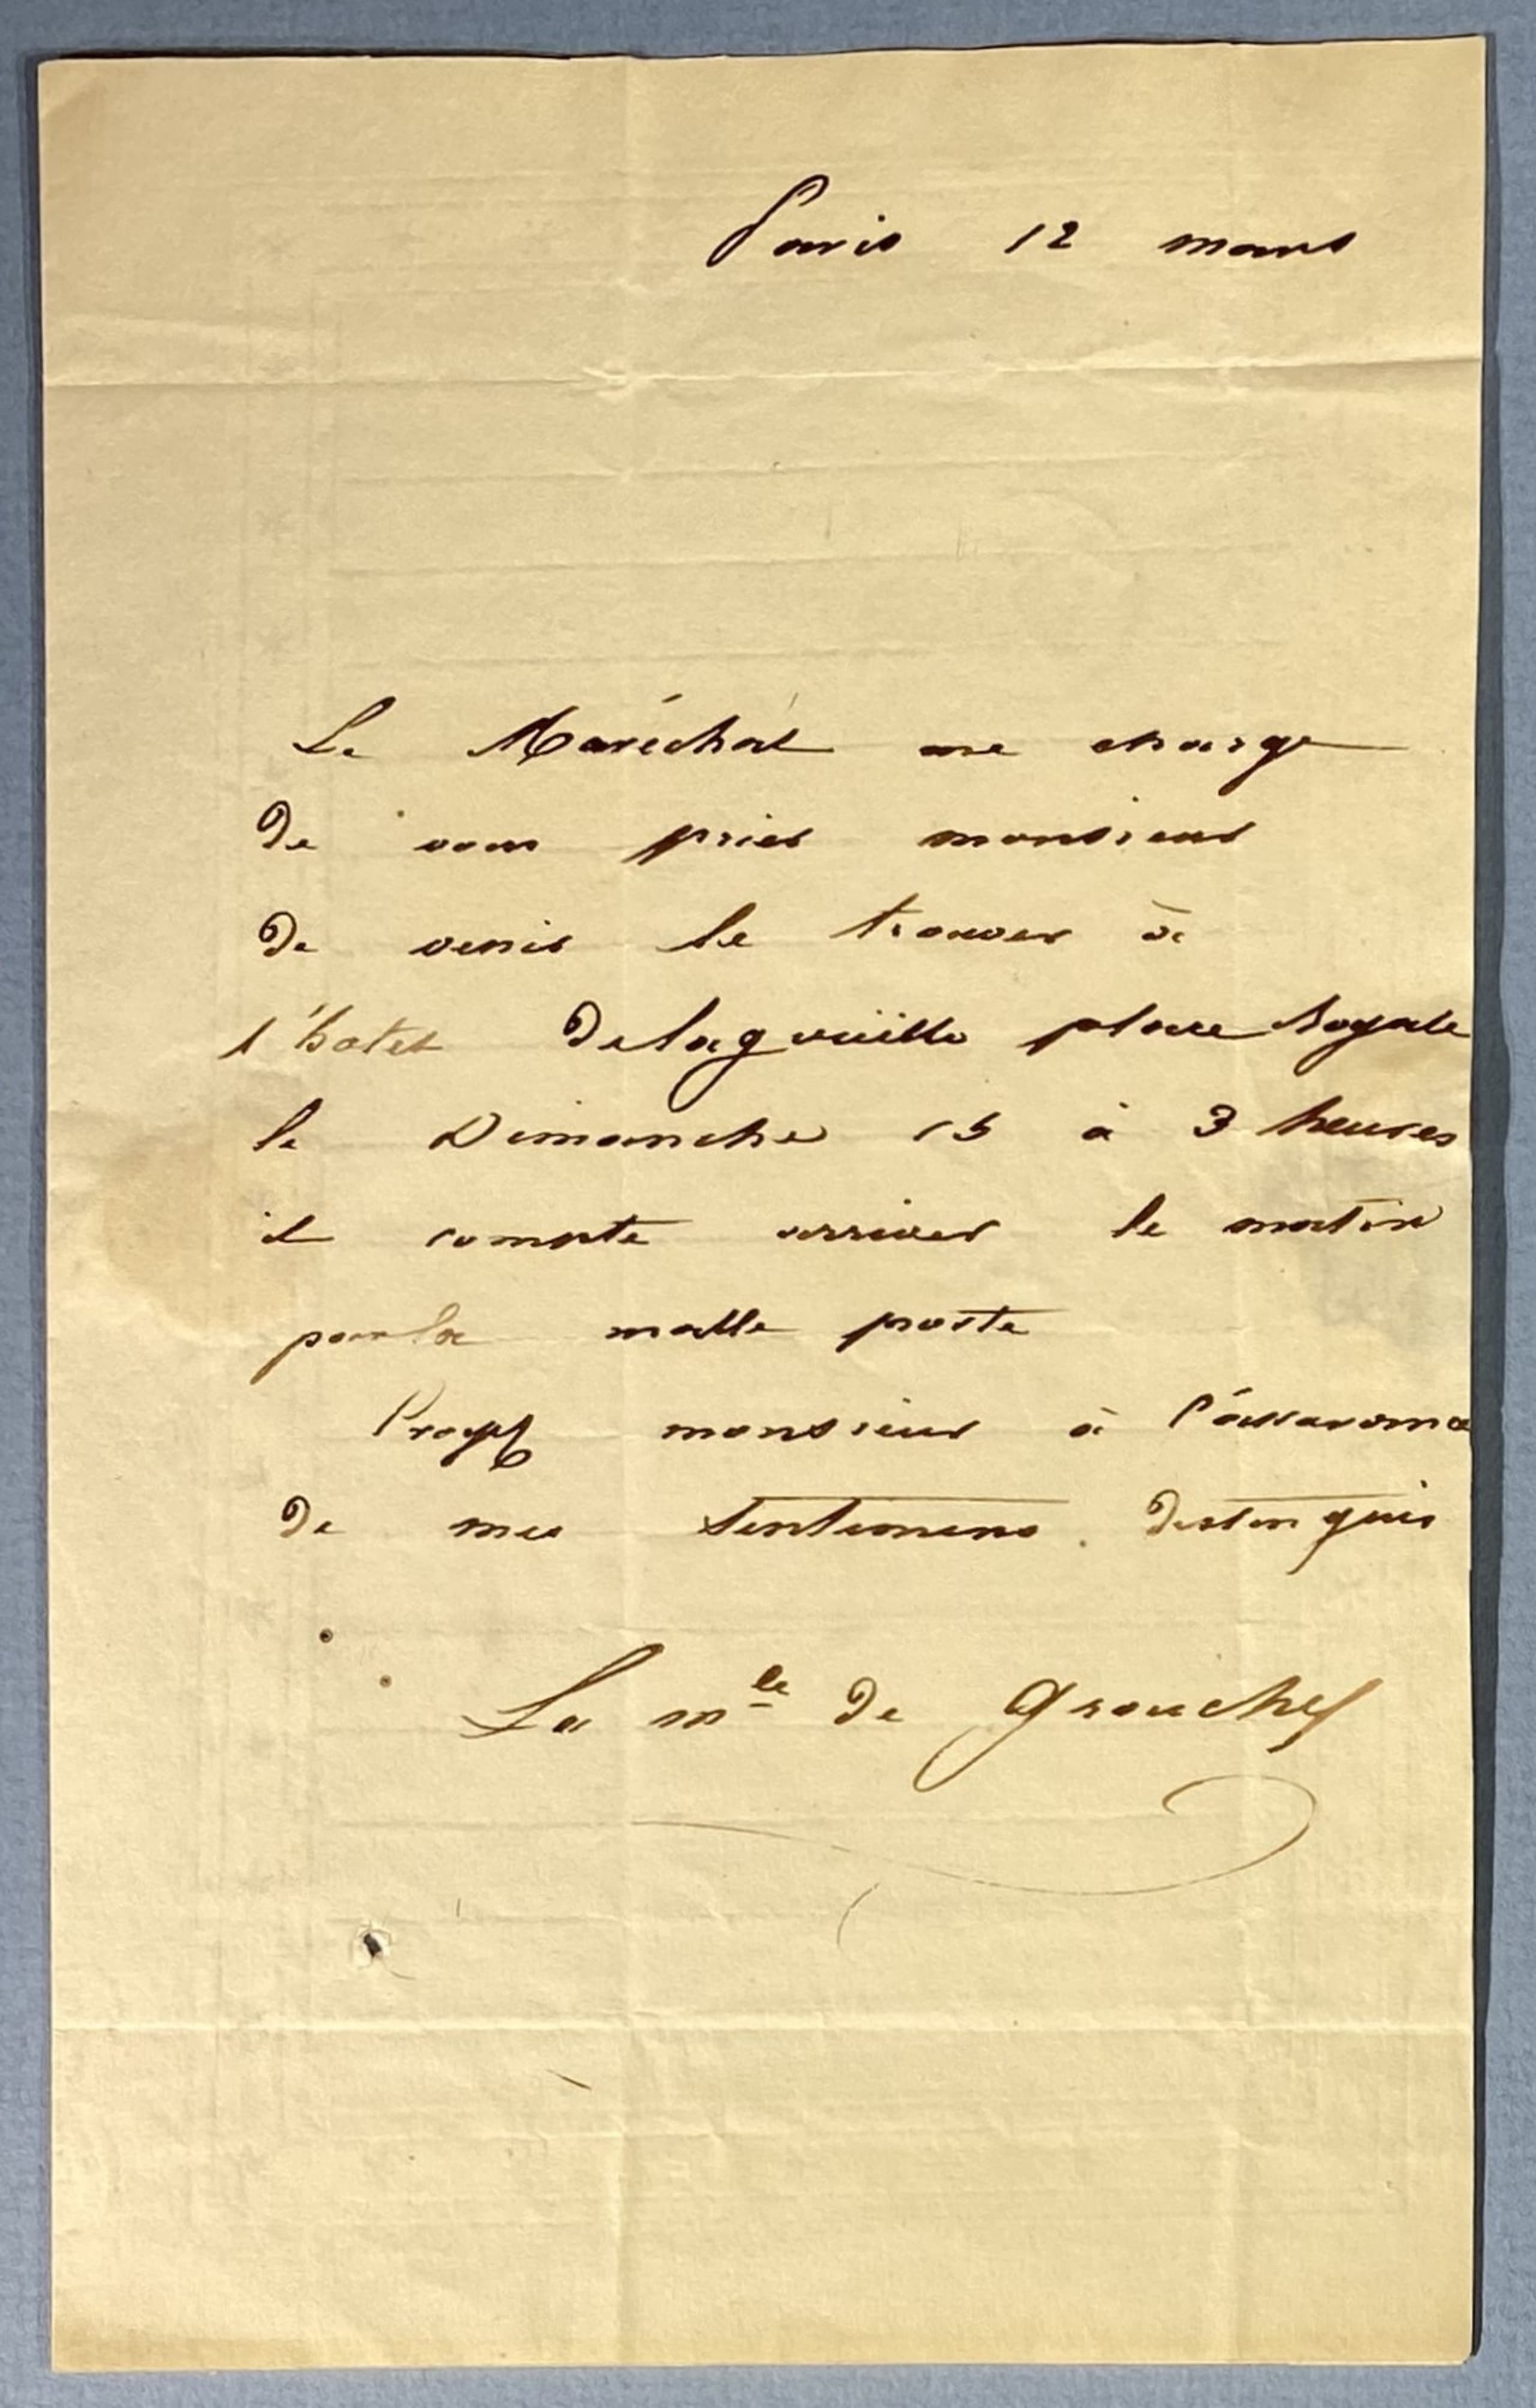 Paris 12 mars
Le Maréchal me charge
de vous prier monsieur
de venir le trouver à
l'hotel place Royale
le Dimanche 15 à 3 heures
il compte arriver le matin
par la malle poste
monsieur à l'assurance
de mes sentimens distingués
La mle de Grouchy